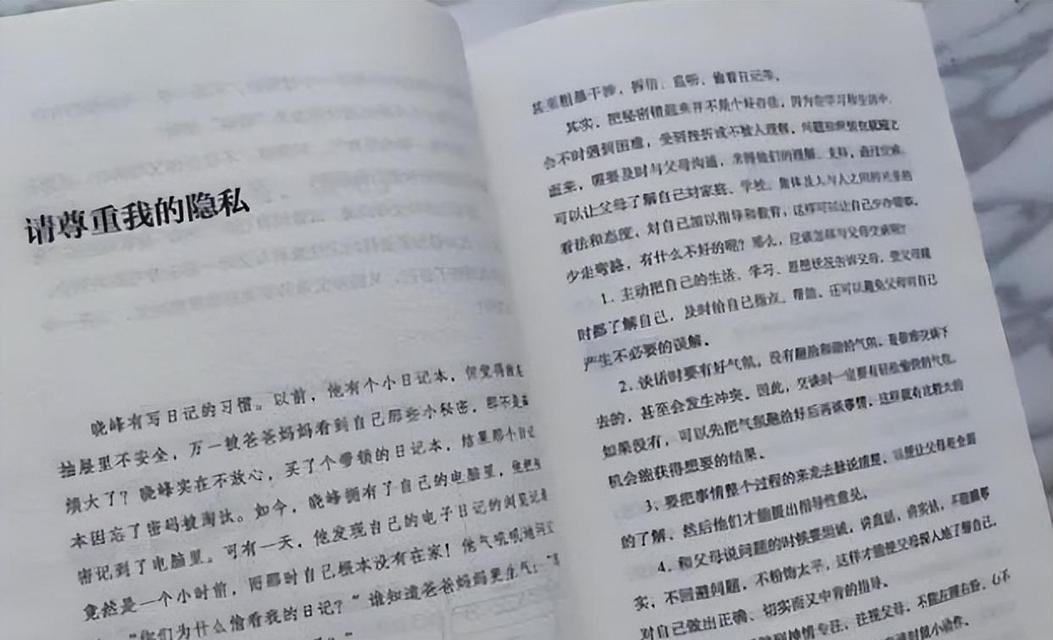 请尊重我的隐私
晓峰有写日记的习惯。以前，他有个小日记本，但觉得放在
抽屉里不安全，万一被爸爸妈妈看到自己那些小秘密，那不是
烦大了？晓峰实在不放心，买了个带锁的日记本，结果那个日记
本因忘了密码被淘汰。如今，晓峰拥有了自己的电脑，他把
密记到了电脑里。可有一天，他发现自己的电子日记的浏览记录
竟然是一个小时前，而那时自己根本没有在家！他气呼呼地问
“你们为什么偷看我的日记？”谁知道爸爸妈妈更生气：
甚至粗暴干涉，拆信、监听、偷看日记等。
其实，把秘密锁起来并不是个好办法，因为在学习和生活中，
会不时遇到困难，受到挫折或不被人理解，问题和烦恼也就随之
而来，需要及时与父母沟通，求得他们的理解、支持，通过交谈
可以让父母了解自己对家庭、学校、集体及人与人之间的关系的
看法和态度，对自己加以指导和教育，这样可以让自己少办错事、
少走弯路，有什么不好的呢？那么，应该怎样与父母交谈呢？
1. 主动把自己的生活、学习、思想状况告诉父母，使父母随
时都了解自己，及时给自己指点、帮助，还可以避免父母对自己
产生不必要的误解。
2. 谈话时要有好气氛，没有融洽和谐的气氛，是很难交谈下
去的，甚至会发生冲突。因此，交谈时一定要有轻松愉快的气氛，
如果没有，可以先把气氛融洽好后再谈事情，这样就有比较大的
机会能获得想要的结果。
3. 要把事情整个过程的来龙去脉说清楚，以便让父母能全面
的了解，然后他们才能提出指导性意见。
4. 和父母说问题的时候要坦诚，讲真话，讲实话，不隐瞒事
实，不回避问题，不粉饰太平，这样才能使父母深入地了解自己，
对自己做出正确、切实而又中肯的指导。
时候神情专注，注视父母，不能左顾右盼，心不
时做小动作。